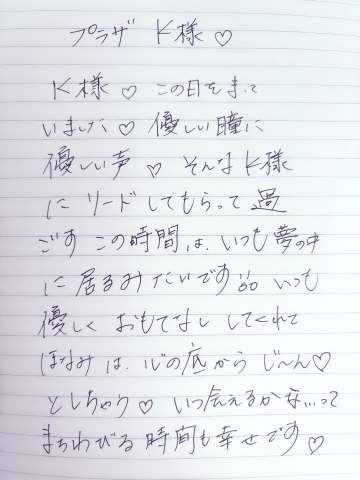 プラザ K様♡
K様♡ この日をまって
いました♡ 優しい瞳に
優しい声♡ そんなK様
に リードしてもらって 過
ごす この時間は、いつも夢の中
に 居るみたいです いつも
優しく おもてなし してくれて
ほなみは、心の底から じ〜ん♡
としちゃう♡ いつ会えるかな...って
まちわびる 時間も幸せです♡